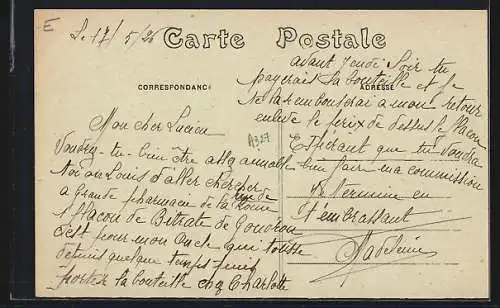 E
Le 17/5/26
Carte Postale
CORRESPONDANCE
ADRESSE
Mon cher Lucien
Voudry-tu-bien être assez aimable
toi ou Louis d'aller chercher
a Grande pharmacie de la Loire
1 flacon de Betrate de Goudron
c'est pour mon Oncle qui tousse
depuis quelque temps puis
porter la bouteille chez Charlotte
avant Jeudi Soir tu
payerais la bouteille et je
te la rembourserai a mon retour
enleve le prix de dessus le flacon
Espérant que tu voudra
bien faire ma commission
Je termine en
t'embrassant
Madeleine